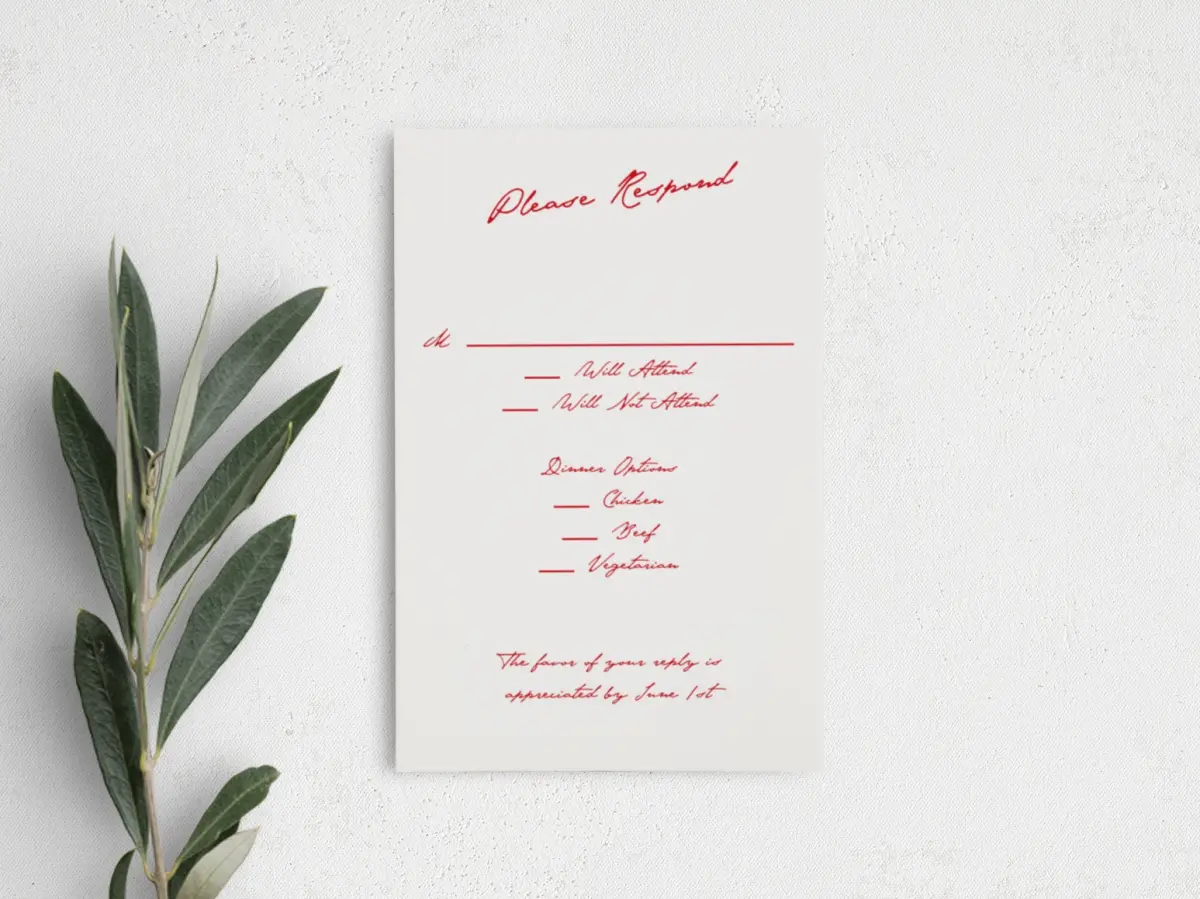 Please Respond
M
Will Attend
Will Not Attend
Dinner Options
Chicken
Beef
Vegetarian
The favor of your reply is
appreciated by June 1st